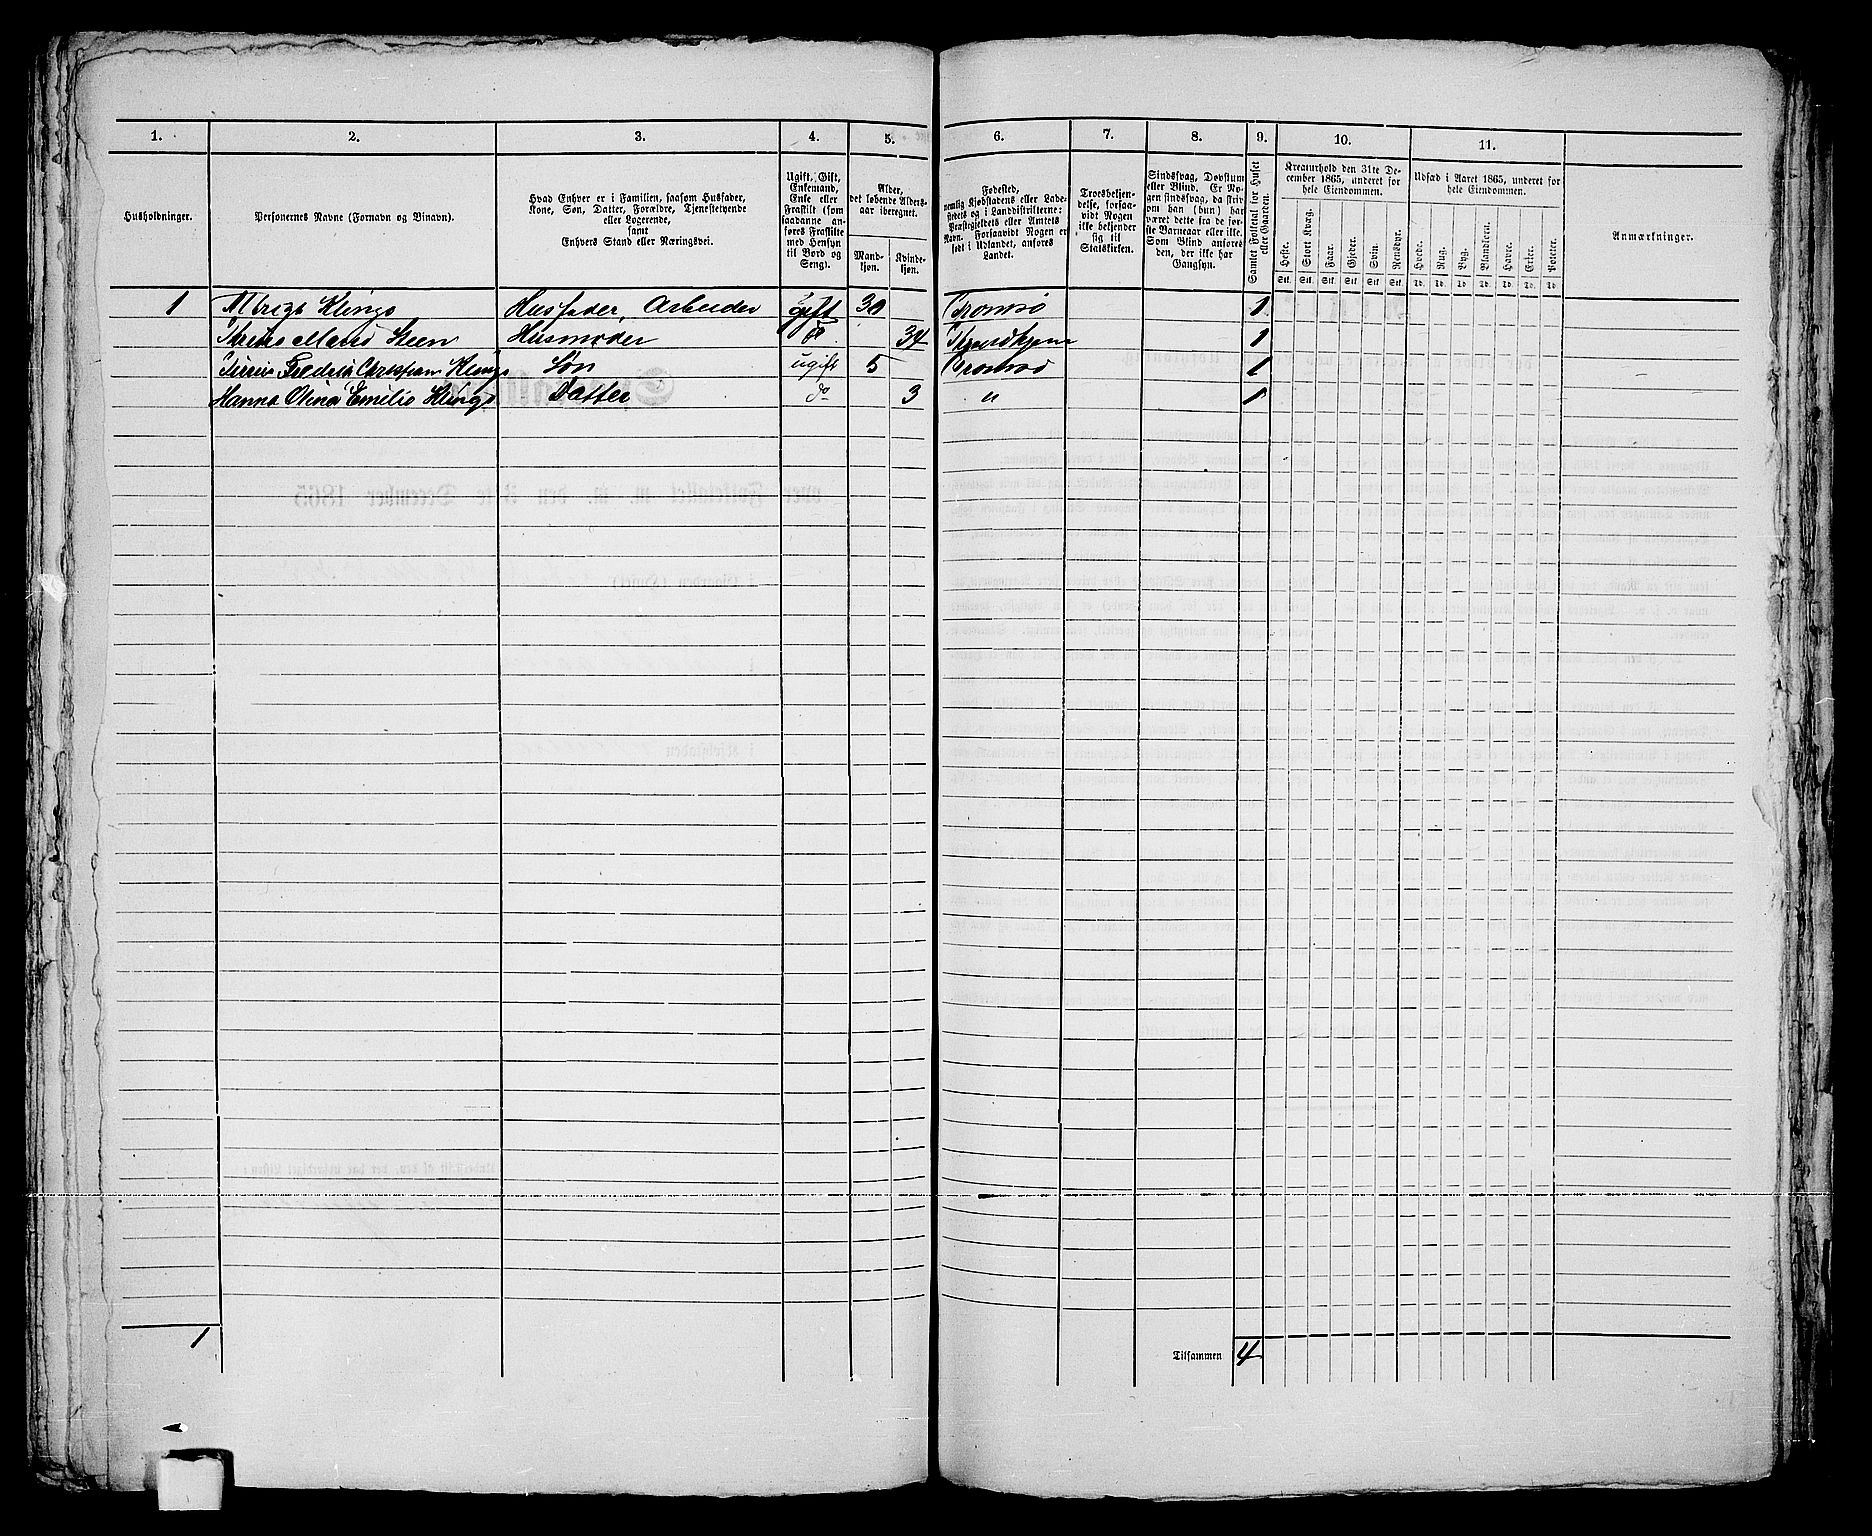 1.
2.
3.
4.
5.
6.
7.
8.
9.
10.
11.
Husholdninger.
Personernes Navne (Fornavn og Binavn).
Hvad Enhver er i Familien, saasom Husfader,
Kone, Søn, Datter, Forældre, Tjenestetyende
eller Logerende,
samt
Enhvers Stand eller Næringsvei.
Ugift, Gift,
Enkemand,
Enke eller
Fraskilt (som
saadanne an-
føres Fraskilte
med Hensyn
til Bord og
Seng).
Alder,
det løbende Alders-
aar iberegnet.
Mand-
kjøn.
Kvinde-
kjøn.
Fødested,
nemlig Kjøbstadens eller Lade-
stedets og i Landdistrikterne:
Præstegjeldets eller Amtets
Navn. Forsaavidt Nogen er
født i Udlandet, anføres
Landet.
Troesbekjen-
delse, forsaa-
vidt Nogen
ikke bekjender
sig til
Statskirken.
Sindssvag, Døvstum
eller Blind. Er No-
gen sindssvag, da skri-
ves om han (hun) har
været dette fra de før-
ste Barneaar eller ikke.
Som Blind anføres
den, der ikke har
Gangsyn.
Samlet Folketal for Huset
eller Gaarden.
Kreaturhold den 31te De-
cember 1865, underet for
hele Eiendommen.
Heste.
Stort Kvæg.
Faar.
Gjeder.
Svin.
Rensdyr.
Stk. Stk. Stk. Stk. Stk. Stk.
Udsæd i Aaret 1865, underet for
hele Eiendommen.
Hvede.
Rug.
Byg.
Blandkorn.
Havre.
Erter.
Poteter.
Td. Td. Td. Td. Td. Td. Td.
Anmærkninger.
1 Klingo Husfader, Arbeider gift 30 Tromsø 1
Steen Husmoder do 34 1
Fredrik Christian Klingo Søn ugift 5 Tromsø 1
Hanna Olina Emilie Klingo Datter do 3 " 1
1
Tilsammen 4